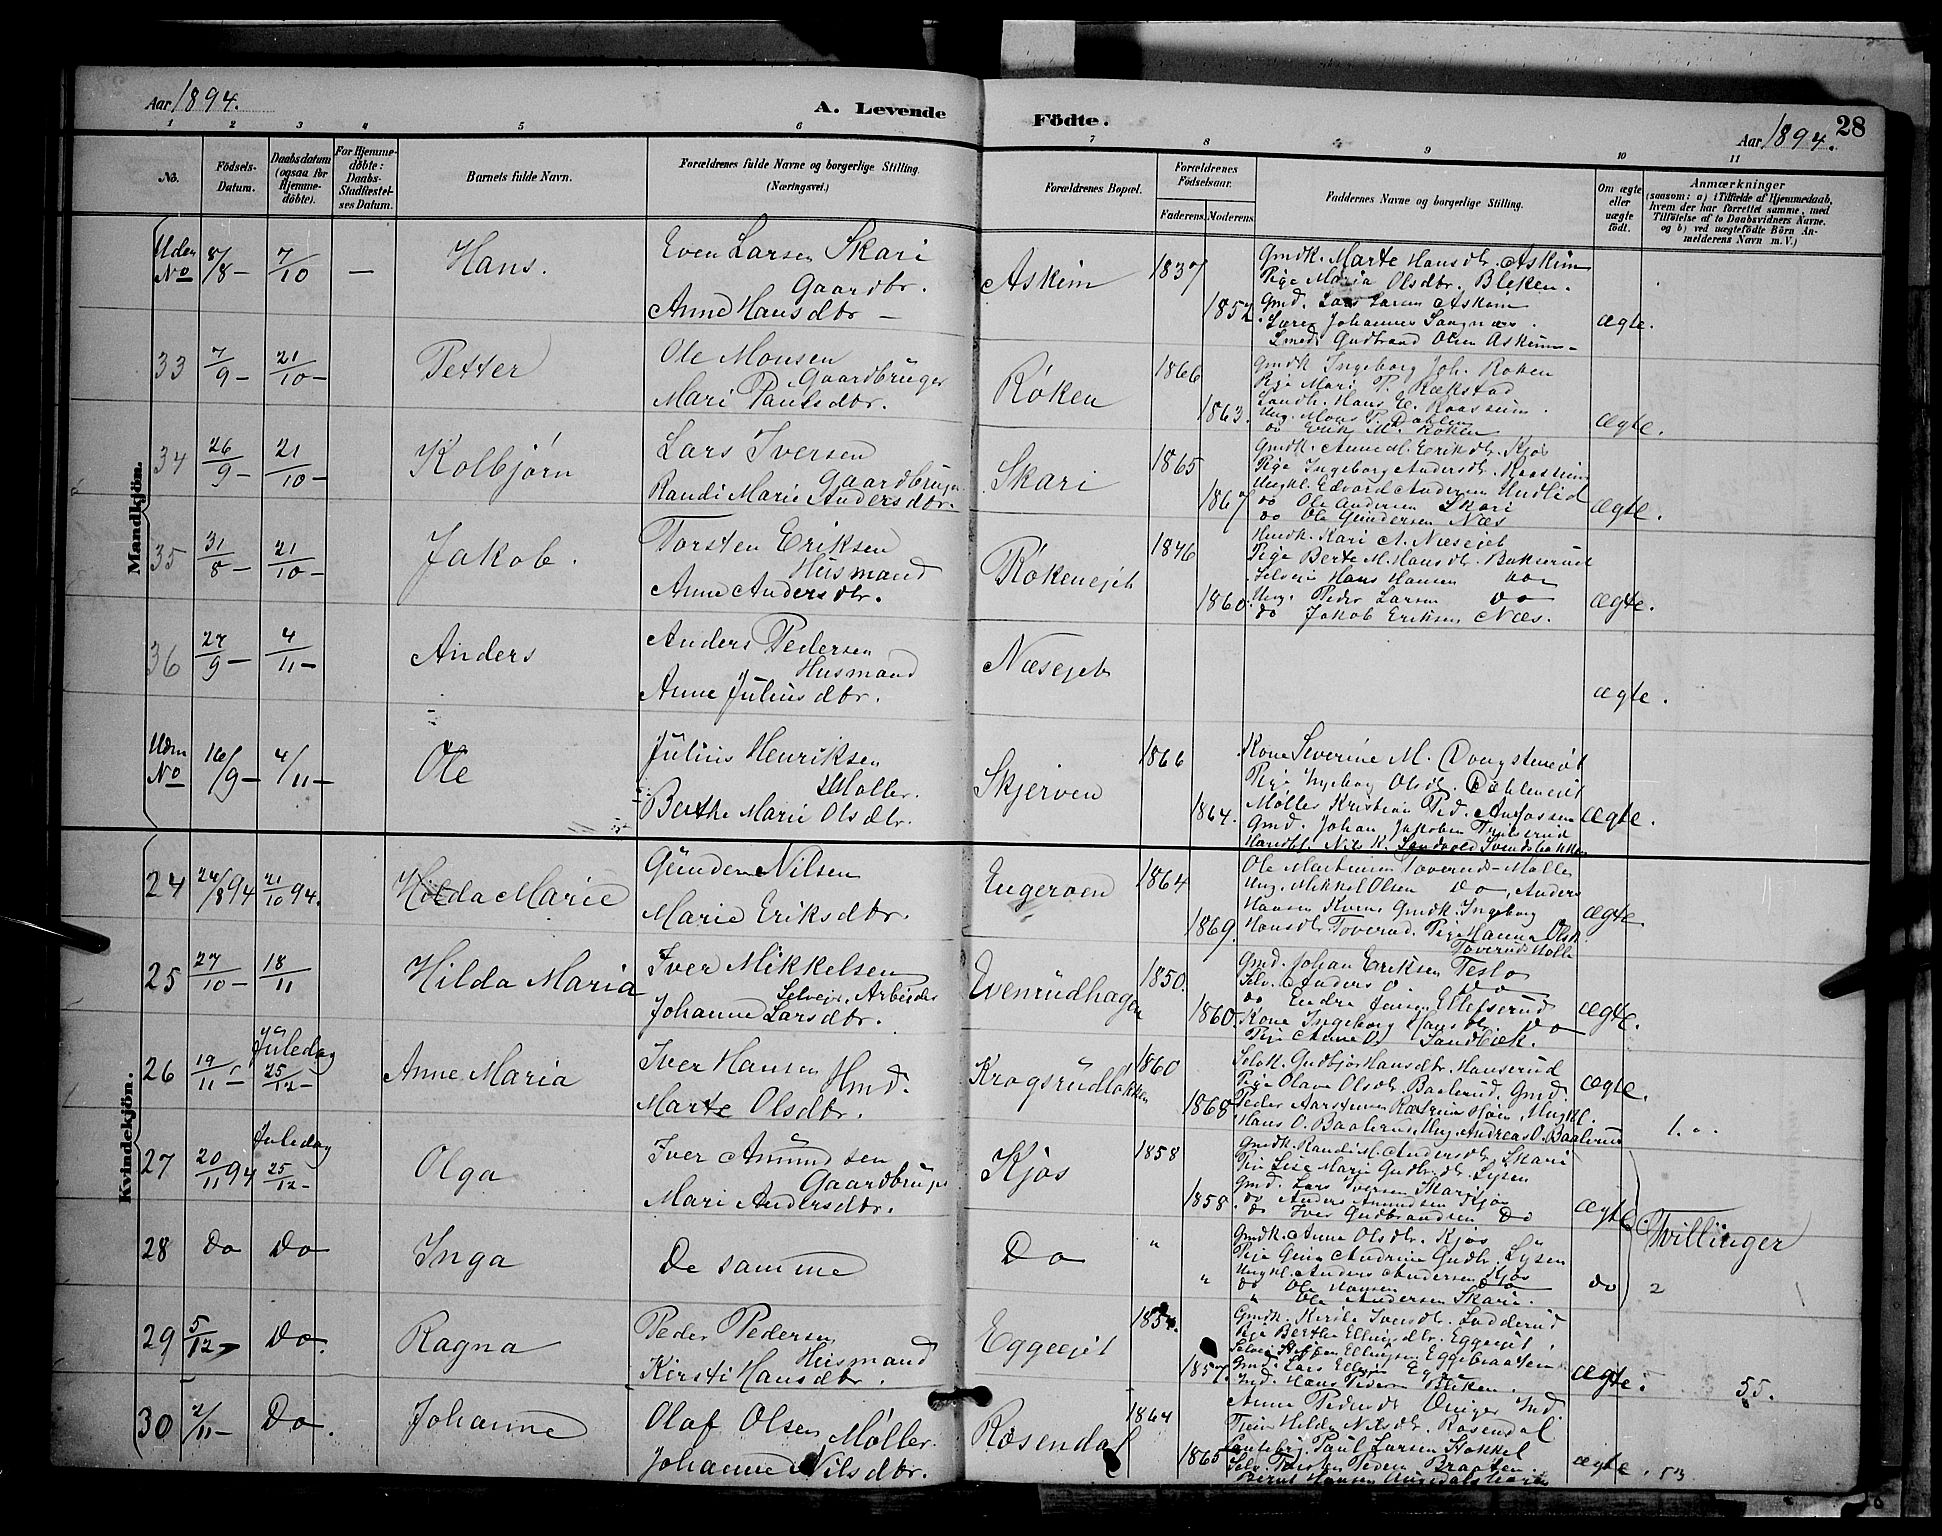 Aar 1894.
A. Levende Födte.
Aar 1894.
28
1 2 3 4 5 6 7 8 9 10 11
No.
Födsels-Datum.
Daabsdatum (ogsaa for Hjemme-döbte).
For Hjemme-döbte: Daabs-Stadfæstel-ses Datum.
Barnets fulde Navn.
Forældrenes fulde Navne og borgerlige Stilling.
(Næringsvei.)
Forældrenes Bopæl.
Forældrenes Födselsaar.
Faderens. Moderens.
Faddernes Navne og borgerlige Stilling.
Om ægte eller uægte födt.
Anmærkninger
(saasom: a) i Tilfælde af Hjemmedaab, hvem der har forrettet samme, med Tilföielse af to Daabsvidners Navne, og b) ved uægtefödte Börn An-melderens Navn m. V.)
Mandkjön.
Uden No 8/8 – 7/10 – Hans.
Even Larsen Skari
Gaardbr.
Anne Hansdtr –
Askim 1837 1852
Gmdk. Marte Hansdtr. Askim
Pige Maria Olsdtr. Bleken.
Gmd. Lars Larsen Askim
Johannes Sangnæs
Smed Gudbrand Olsen Askim
ægte.
33 7/9 – 21/10 – Petter
Ole Monsen
Gaardbruger
Mari Paulsdtr.
Røken 1866 1863.
Gmdk Ingeborg Joh. Røken
Pige Mari P. Rækstad
Landh. Hans E. Kaassum
Ung. Mons P. Dahlen
do Erik M. Røken
ægte.
34 26/9 – 21/10 – Kolbjørn
Lars Iversen
Gaardbruger
Randi Marie Andersdtr.
Skari 1865 1867
Gmdk. Anne M. Eriksdtr. Kjos
Pige Ingeborg Andersdtr.
Ungkl. Edvard Andersen Undlid
do Ole Andersen Skari
do Ole Gundersen Næs
ægte.
35 31/8 – 21/10 – Jakob.
Torsten Eriksen
Husmand
Anne Andersdtr.
Røkenejet 1846 1860.
Hmdk. Kari A. Næsejet
Pige Berte M. Hansdtr. Bakserud
Selveir Hans Hansen do
Ung. Peder Larsen do
do Jakob Eriksen Næs.
ægte.
36 27/9 – 4/11 – Anders
Anders Pedersen
Husmand
Anne Juliusdtr.
Næsejet
ægte.
Uden No 16/9 – 4/11 – Ole
Julius Henriksen
Møller.
Berthe Marie Olsdtr.
Skjerven 1866 1864.
Kone Severine M.
Pige Ingeborg Olsdtr. Dahleneiet
Møller Kristian Ped.
Gmd. Johan Jakobsen
Nils K. Sandvold
ægte.
Kvindekjön.
24 24/8 94 21/10 94. Hilda Marie
Gunder Nilsen
Marie Eriksdtr.
Engeroen 1864 1869.
Ole Martinsen Toverud-Mølle
Ung. Mikkel Olsen do, Anders
Hansen Gmdk. Ingeborg
Hansdtr. Toverud. Pige Hanna Olsdt.
Toverud Mølle
ægte
25 27/10 – 18/11 Hilda Maria
Iver Mikkelsen
Selveir, Arbeider
Johanne Larsdtr.
Evenrudhagen 1850. 1860.
Gmd. Johan Eriksen Teslo
Selv. Anders O. do
do Endre Jensen Ellefsrud
Kone Ingeborg Hansdtr. do
Pige Anne O. Sandbæk.
ægte.
26 19/11 – Juledag 25/12 – Anne Maria
Iver Hansen Hmd.
Marte Olsdtr.
Krogsrudløkken 1860 1868
Selvk. Gudbjør Hansdtr. Hanserud
Pige Olava Olsdtr. Baalerud, Gmd.
Peder Aarstumen
Hans O. Baalerud, Ung. Andreas O. Baalerud
ægte.
1.
27 20/11 94 Juledag 25/12 – Olga
Iver Amundsen
Gaardbruger
Mari Andersdtr.
Kjos 1858 1858.
Gmdk. Randi M. Andersdtr. Skari
Pige Lise Marie Gudbr.dtr. Lysen
Gmd. Lars Iversen Skari
do Anders Amundsen Kjos
do Iver Gudbrandsen do
ægte
28 Do Do Inga
De samme
Do " "
Gmdk. Anne Olsdtr. Kjos
Pige Gina Andrine Gudbr. Lysen
Ungkl. Anders Andersen Kjos
do Ole Hansen do
" Ole Andersen Skari.
do
Tvillinger
2
29 5/12 – Do. Ragna
Peder Pedersen
Husmand
Kirsti Hansdtr.
Eggeejet 1857.
Gmdk. Kirsti Iversdtr. Lodderud
Pige Berthe Ellingsdtr. Eggeejet
Ellingsen Eggebraaten
Gmd. Lars Ellingsen
Ind. Hans Pedersen Bleken.
ægte.
55.
30 2/11 – Do. Johanne
Olaf Olsen Møller.
Johanne Nilsdtr.
Rosendal 1864 1865
Anne Pedersdt. Ind
Hilda Nilsdtr. Rosendal
Paul Larsen Hokkel
Selv. Torsten Pedersen Braaten.
Bernt Hansen
ægte.
53